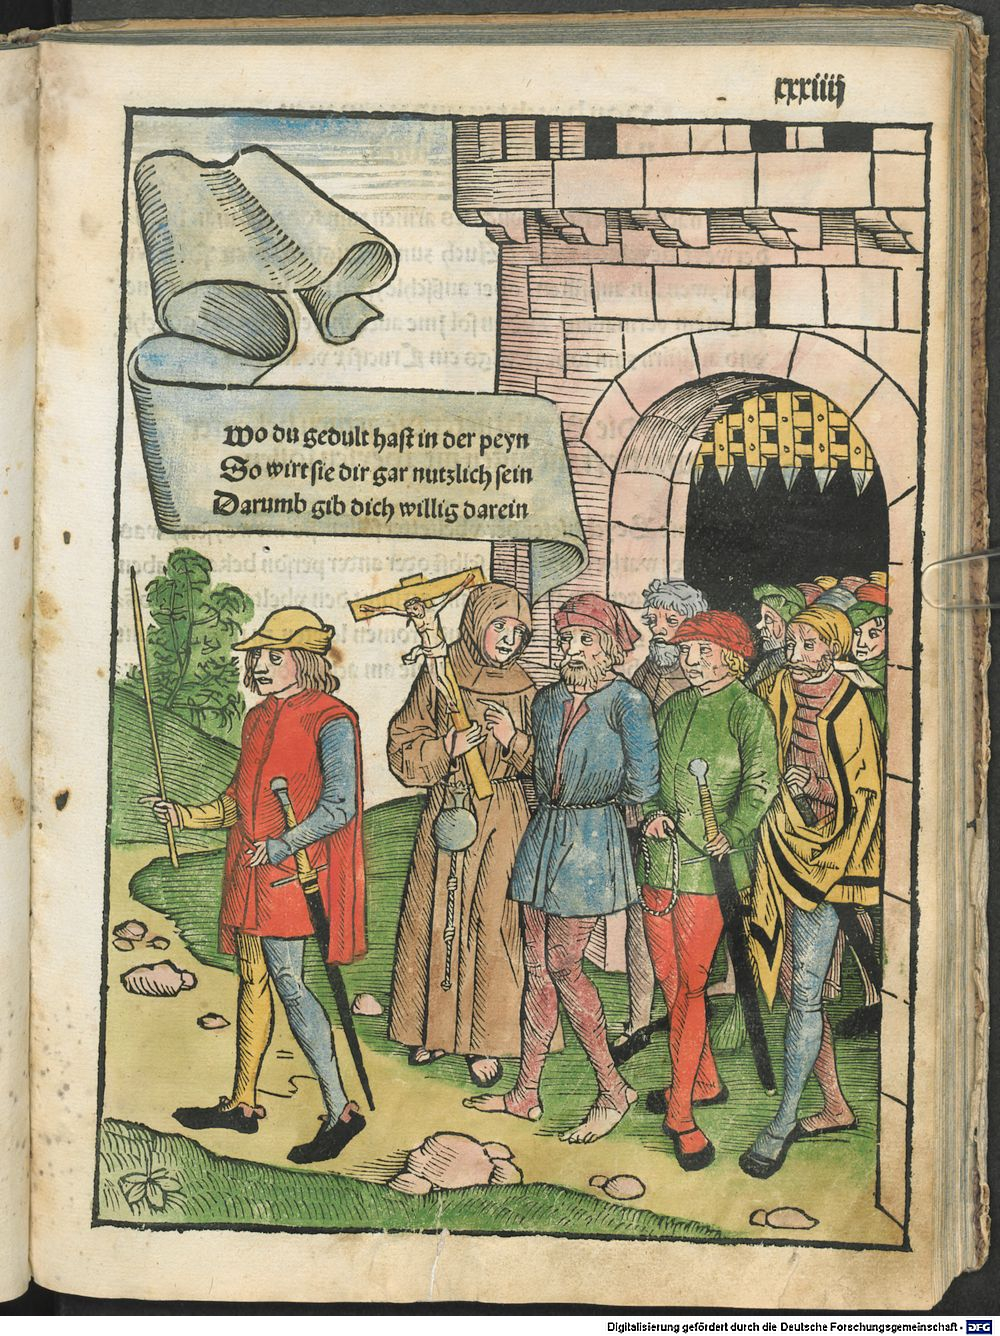 xxxiiij
Wo du gedult hast in der peyn
So wirt sie dir gar nutzlich sein
Darumb gib dich willig darein
Digitalisierung gefördert durch die Deutsche Forschungsgemeinschaft - DFG